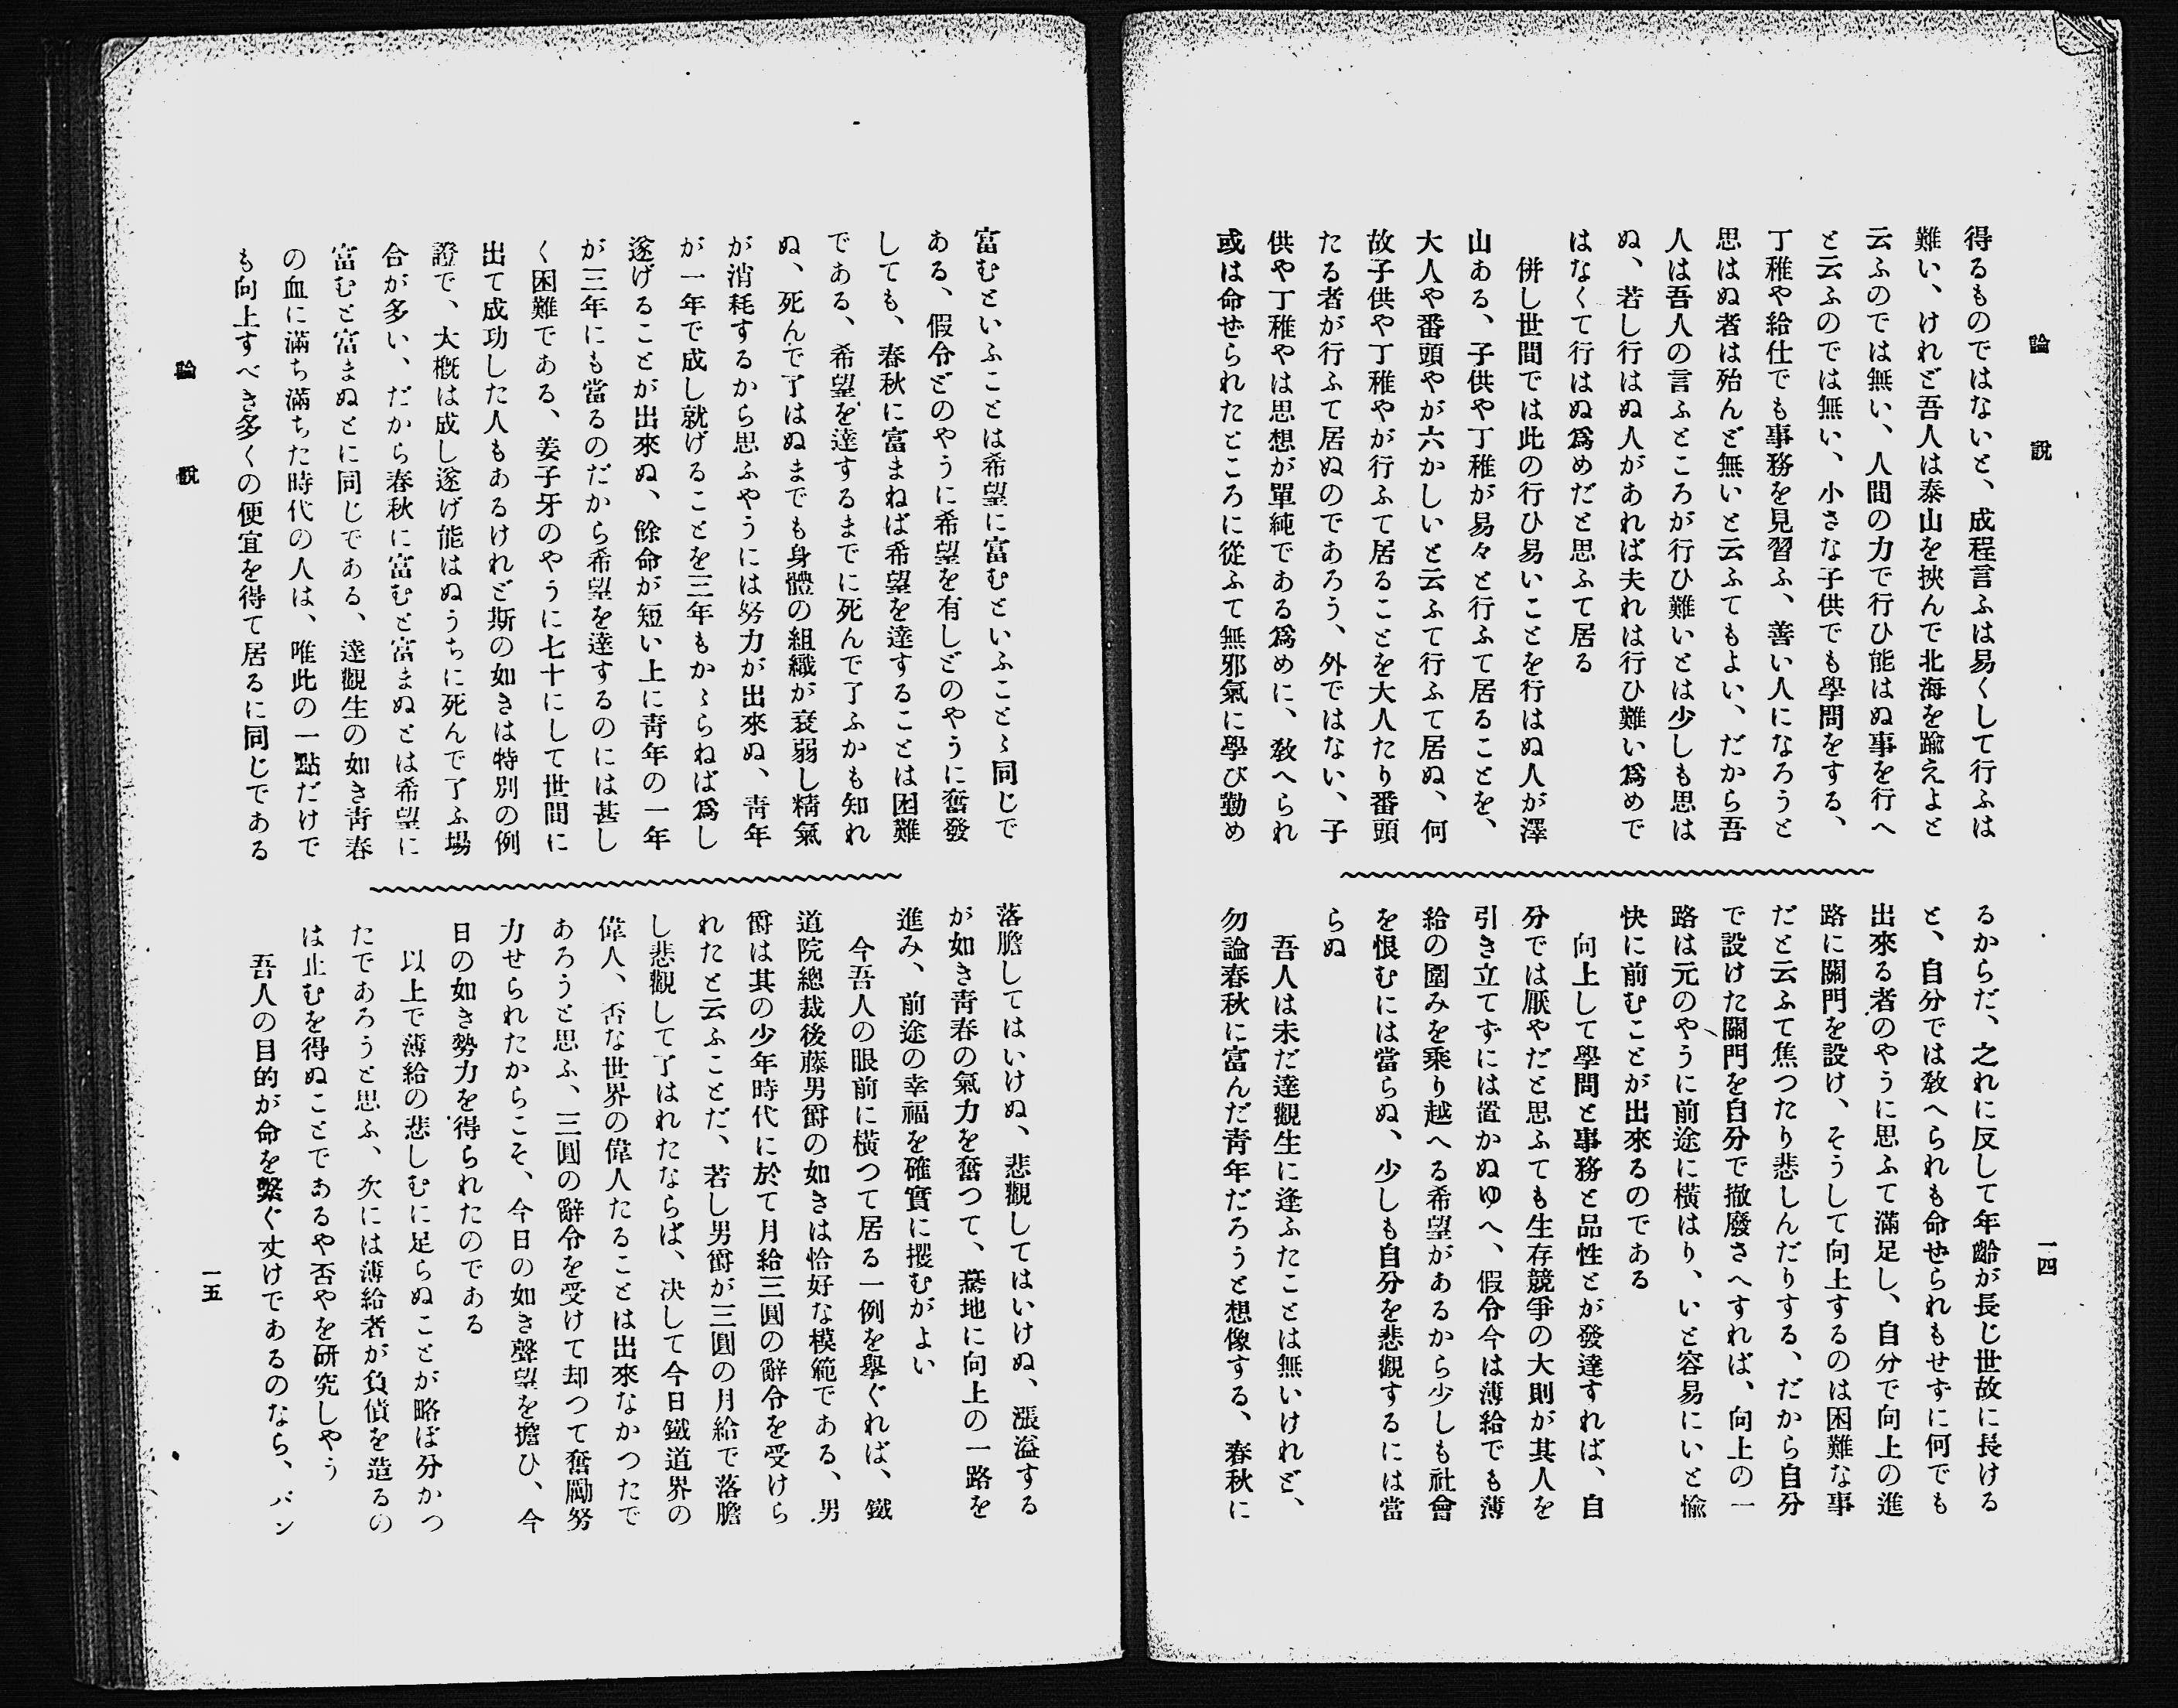 論說
一四
得るものではないと、成程言ふは易くして行ふは
難い、けれど吾人は泰山を挾んで北海を踰えよと
云ふのでは無い、人間の力で行ひ能はぬ事を行へ
と云ふのでは無い、小さな子供でも學問をする、
丁稚や給仕でも事務を見習ふ、善い人になろうと
思はぬ者は殆んど無いと云ふてもよい、だから吾
人は吾人の言ふところが行ひ難いとは少しも思は
ぬ、若し行はぬ人があれば夫れは行ひ難い爲めで
はなくて行はぬ爲めだと思ふて居る
併し世間では此の行ひ易いことを行はぬ人が澤
山ある、子供や丁稚が易々と行ふて居ることを、
大人や番頭やが六かしいと云ふて行ふて居ぬ、何
故子供や丁稚やが行ふて居ることを大人たり番頭
たる者が行ふて居ぬのであろう、外ではない、子
供や丁稚やは思想が單純である爲めに、敎へられ
或は命ぜられたところに從ふて無邪氣に學び勤め
るからだ、之れに反して年齡が長じ世故に長ける
と、自分では敎へられも命せられもせずに何でも
出來る者のやうに思ふて滿足し、自分で向上の進
路に關門を設け、そうして向上するのは困難な事
だと云ふて焦つたり悲しんだりする、だから自分
で設けた關門を自分で撤廢さへすれば、向上の一
路は元のやうに前途に横はり、いと容易にいと愉
快に前むことが出來るのである
向上して學問と事務と品性とが發達すれば、自
分では厭やだと思ふても生存競爭の大則が其人を
引き立てずには置かぬゆへ、假令今は薄給でも薄
給の圍みを乘り越へる希望があるから少しも社會
を恨むには當らぬ、少しも自分を悲觀するには當
らぬ
吾人は未だ達觀生に逢ふたことは無いけれど、
勿論春秋に富んだ靑年だろうと想像する、春秋に
富むといふことは希望に富むといふことゝ同じで
ある、假令どのやうに希望を有しどのやうに奮發
しても、春秋に富まねば希望を達することは困難
である、希望を達するまでに死んで了ふかも知れ
ぬ、死んで了はぬまでも身體の組織が衰弱し精氣
が消耗するから思ふやうには努力が出來ぬ、靑年
が一年で成し就げることを三年もかゝらねば爲し
遂げることが出來ぬ、餘命が短い上に靑年の一年
が三年にも當るのだから希望を達するのには甚し
く困難である、姜子牙のやうに七十にして世間に
出て成功した人もあるけれど斯の如きは特別の例
證で、大槪は成し遂げ能はぬうちに死んで了ふ場
合が多い、だから春秋に富むと富まぬとは希望に
富むと富まぬとに同じである、達觀生の如き靑春
の血に滿ち滿ちた時代の人は、唯此の一點だけで
も向上すべき多くの便宜を得て居るに同じである
落膽してはいけぬ、悲觀してはいけぬ、漲溢する
が如き靑春の氣力を奮つて、驀地に向上の一路を
進み、前途の幸福を確實に攫むがよい
今吾人の眼前に橫つて居る一例を擧ぐれば、鐵
道院總裁後藤男爵の如きは恰好な模範である、男
爵は其の少年時代に於て月給三圓の辭令を受けら
れたと云ふことだ、若し男爵が三圓の月給で落膽
し悲觀して了はれたならば、決して今日鐵道界の
偉人、否な世界の偉人たることは出來なかつたで
あろうと思ふ、三圓の辭令を受けて却つて奮勵努
力せられたからこそ、今日の如き聲望を擔ひ、今
日の如き勢力を得られたのである
以上で薄給の悲しむに足らぬことが略ぼ分かつ
たであろうと思ふ、次には薄給者が負債を造るの
は止むを得ぬことであるや否やを研究しやう
吾人の目的が命を繫ぐ丈けであるのなら、パン
論說
一五